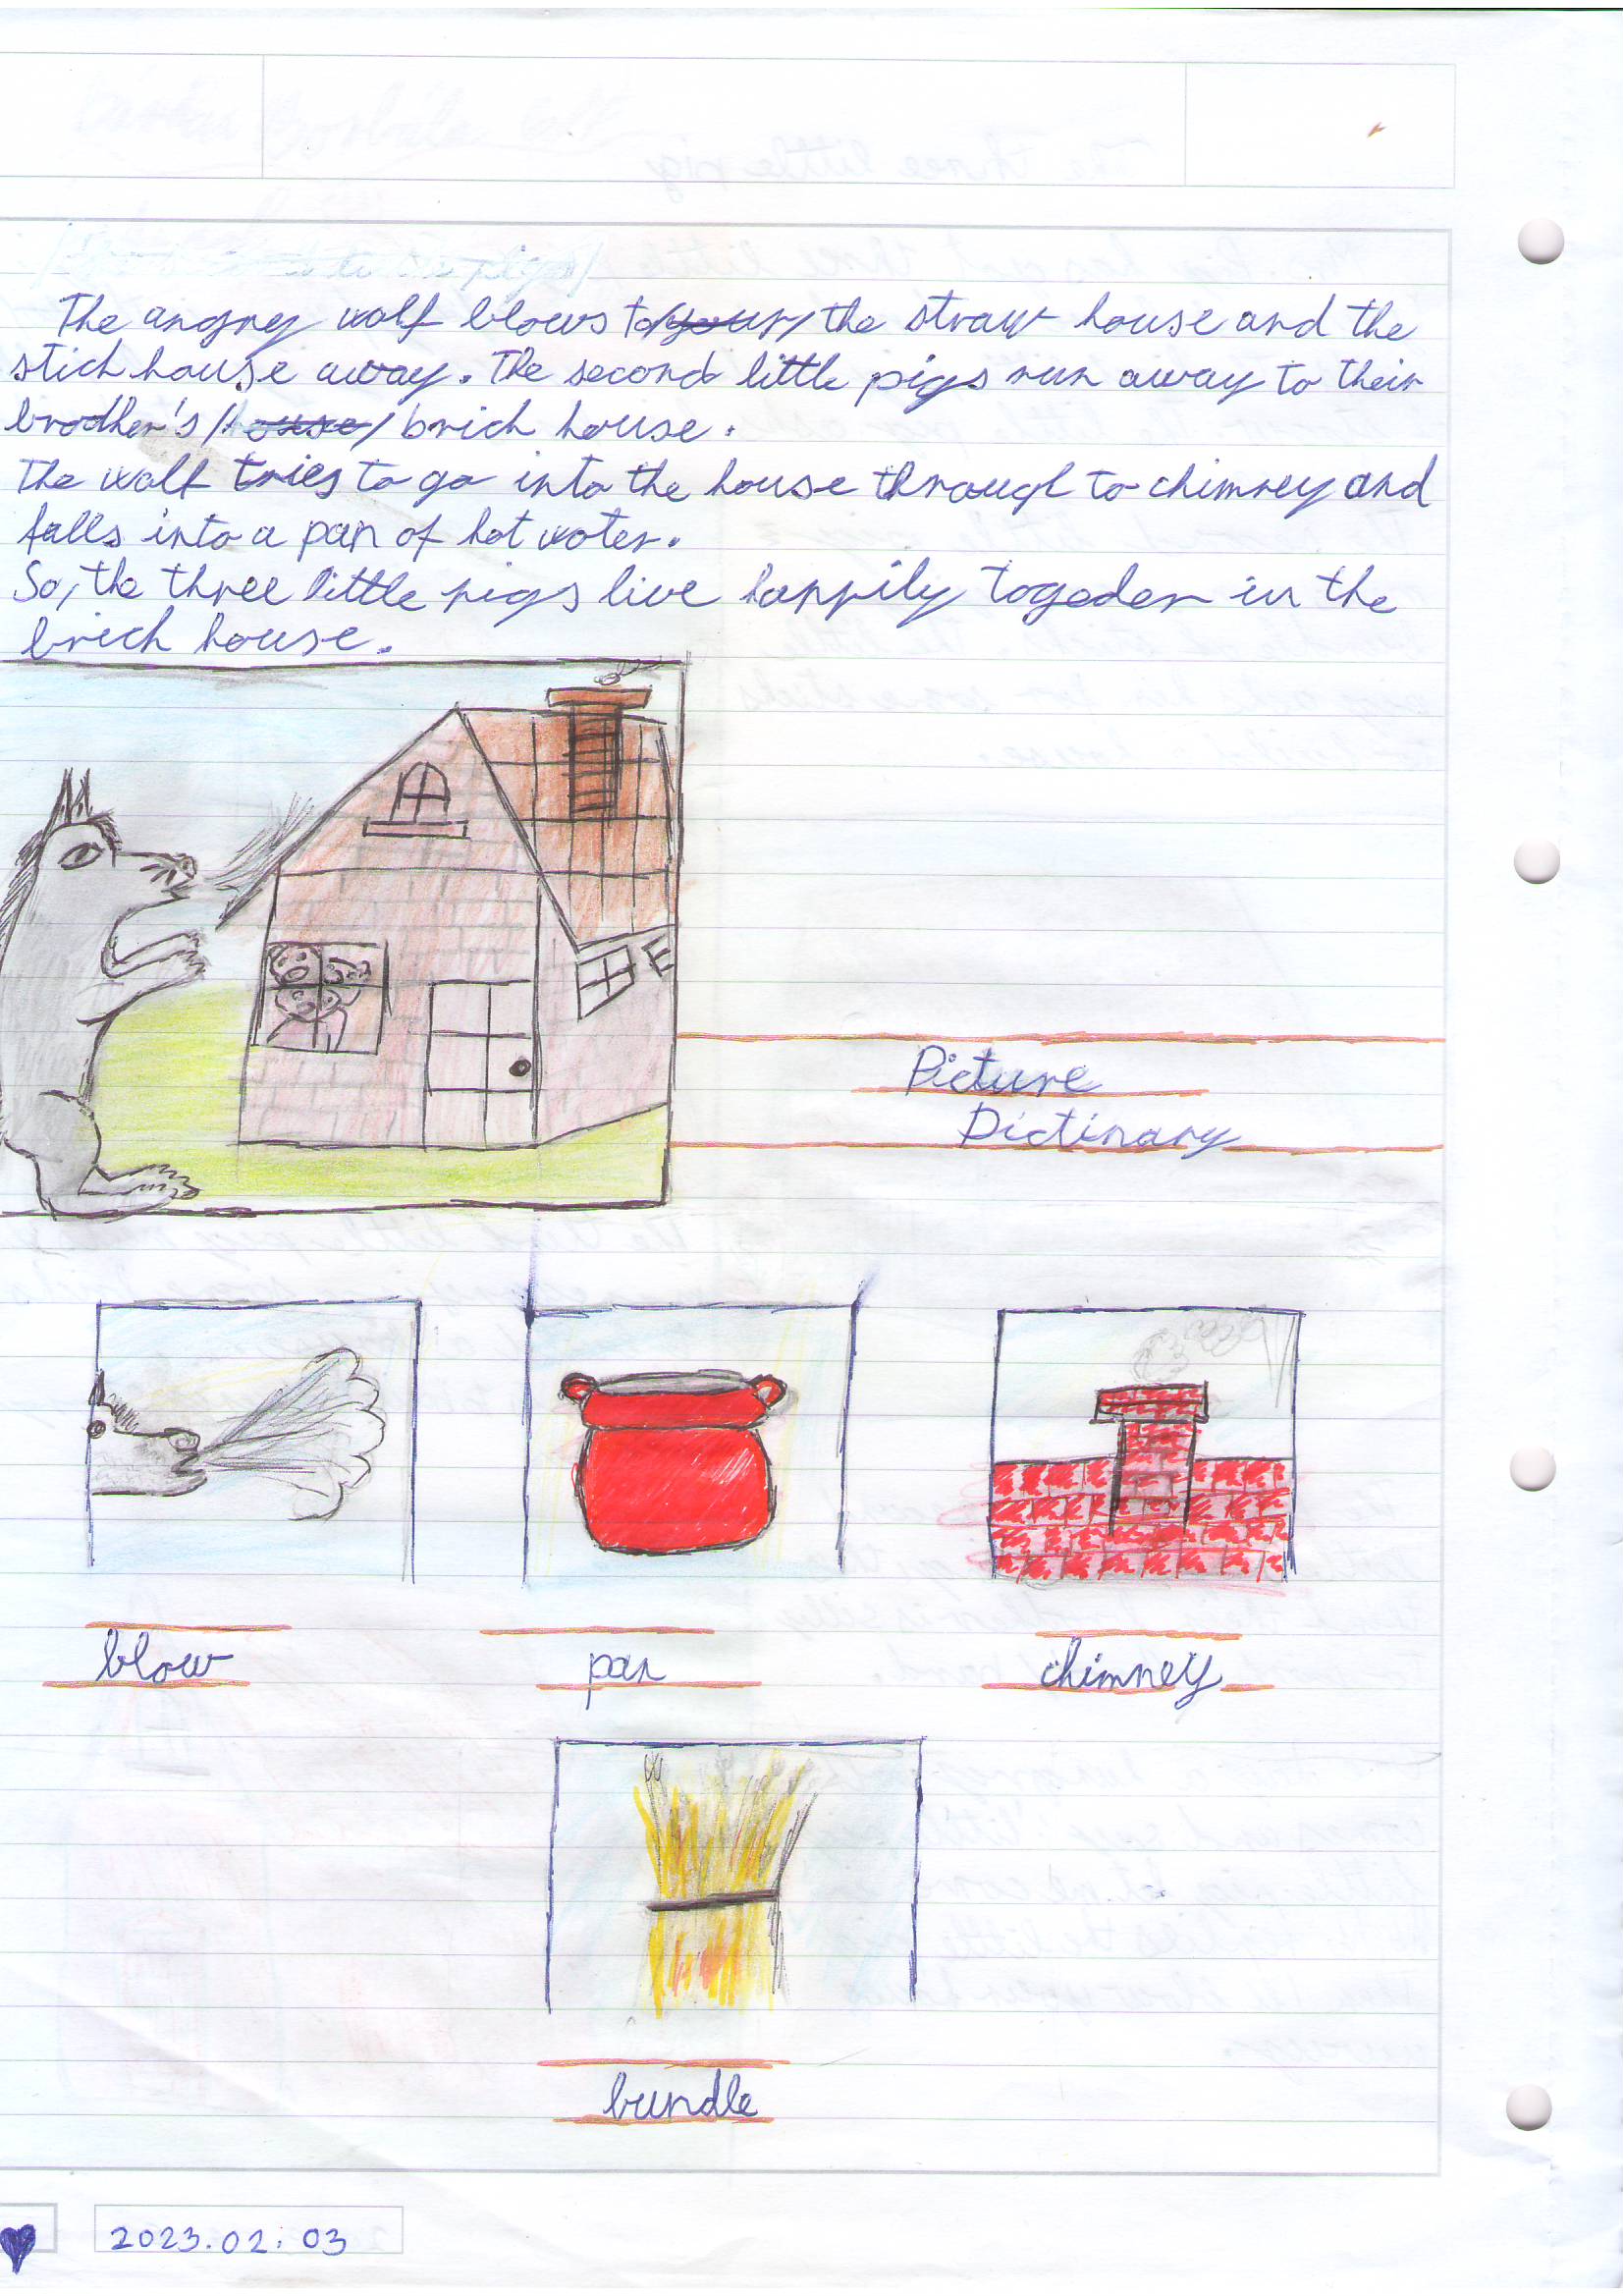 The angry wolf blows to your the straw house and the
stich house away. The second little pigs run away to their
brodher's house brich house.
The wolf tries to go into the house through to chimney and
falls into a pan of hot woter.
So, the three little pigs live happily togeder in the
brich house.
Picture
Dictinary
blow
pan
chimney
bundle
2023.02.03